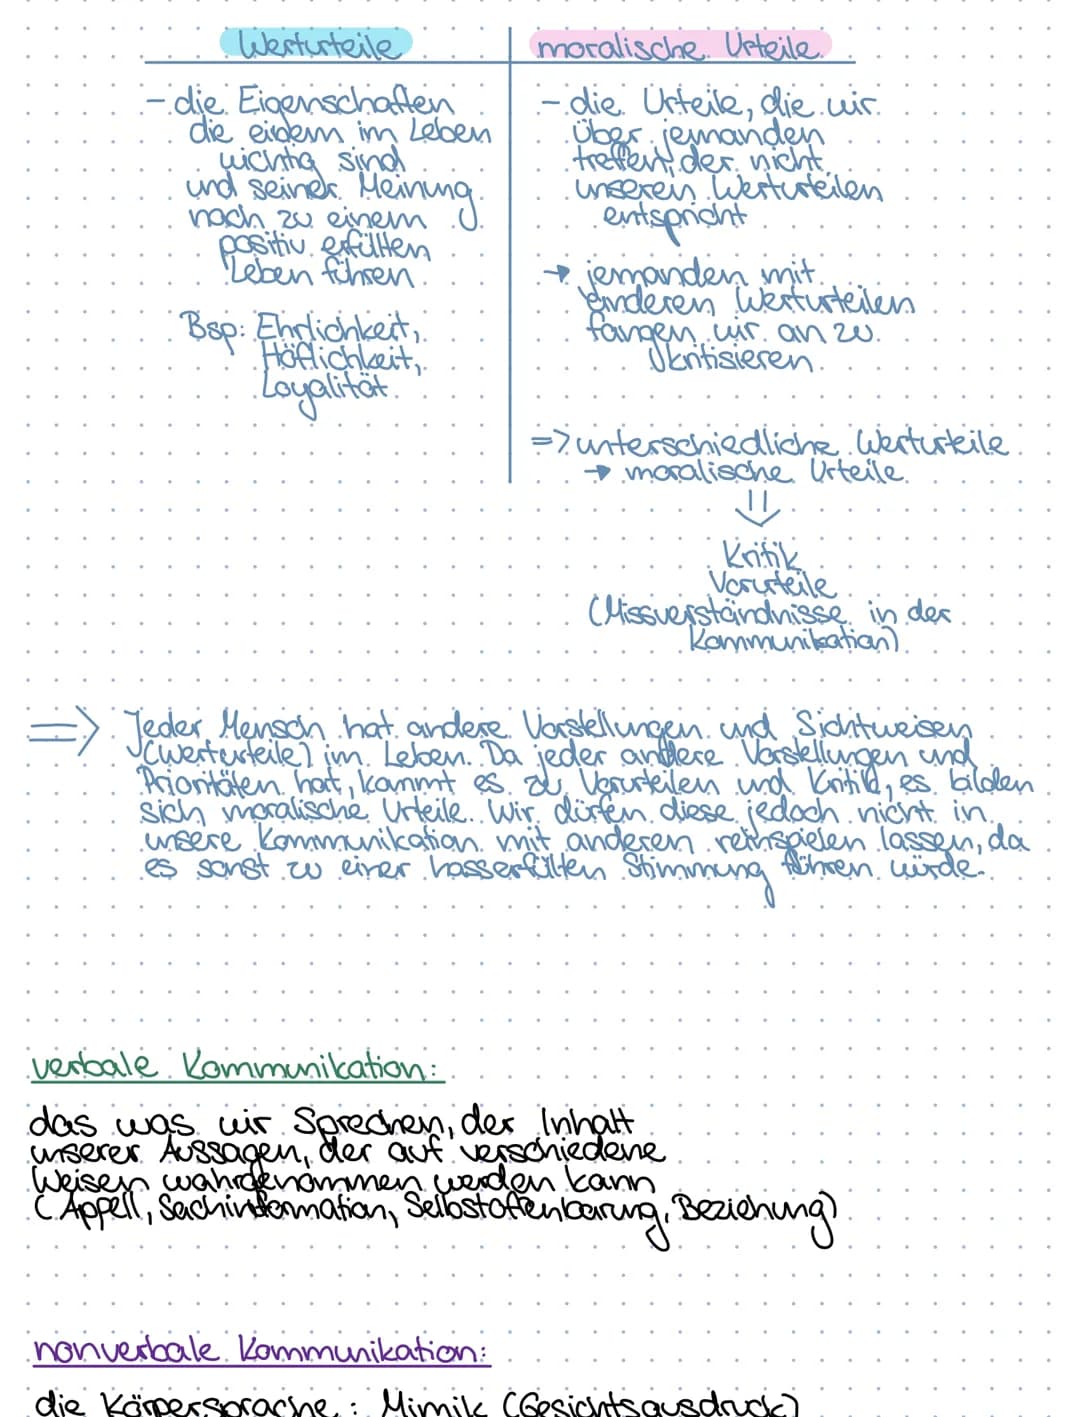 Werturteile
- die Eigenschaften
die eidem im Leben
wichtig sind
und seiner Meinung
nach zu einem
positiv erfüllten
Leben führen
Bsp: Ehrlichkeit,
Höflichkeit,
Loyalität
moralische Urteile
- die Urteile, die wir
über jemanden
treffen, der nicht
unseren Werturteilen
entspricht
→ jemanden mit
anderen Werturteilen
fangen wir an zu
kritisieren
=> unterschiedliche Werturteile
→ moralische Urteile
⇓
Kritik
Vorurteile
(Missverständnisse in der
Kommunikation)
=> Jeder Mensch hat andere Vorstellungen und Sichtweisen
(Werturteile) im Leben. Da jeder andere Vorstellungen und
Prioritäten hat, kommt es zu Vorurteilen und Kritik, es bilden
sich moralische Urteile. Wir dürfen diese jedoch nicht in
unsere Kommunikation mit anderen reinspielen lassen, da
es sonst zu einer hasserfüllten Stimmung führen würde.
verbale Kommunikation:
das was wir Sprechen, der Inhalt
unserer Aussagen, der auf verschiedene
Weisen wahrgenommen werden kann
(Appell, Sachinformation, Selbstoffenbarung, Beziehung)
nonverbale Kommunikation:
die Körpersprache: Mimik (Gesichtsausdruck)